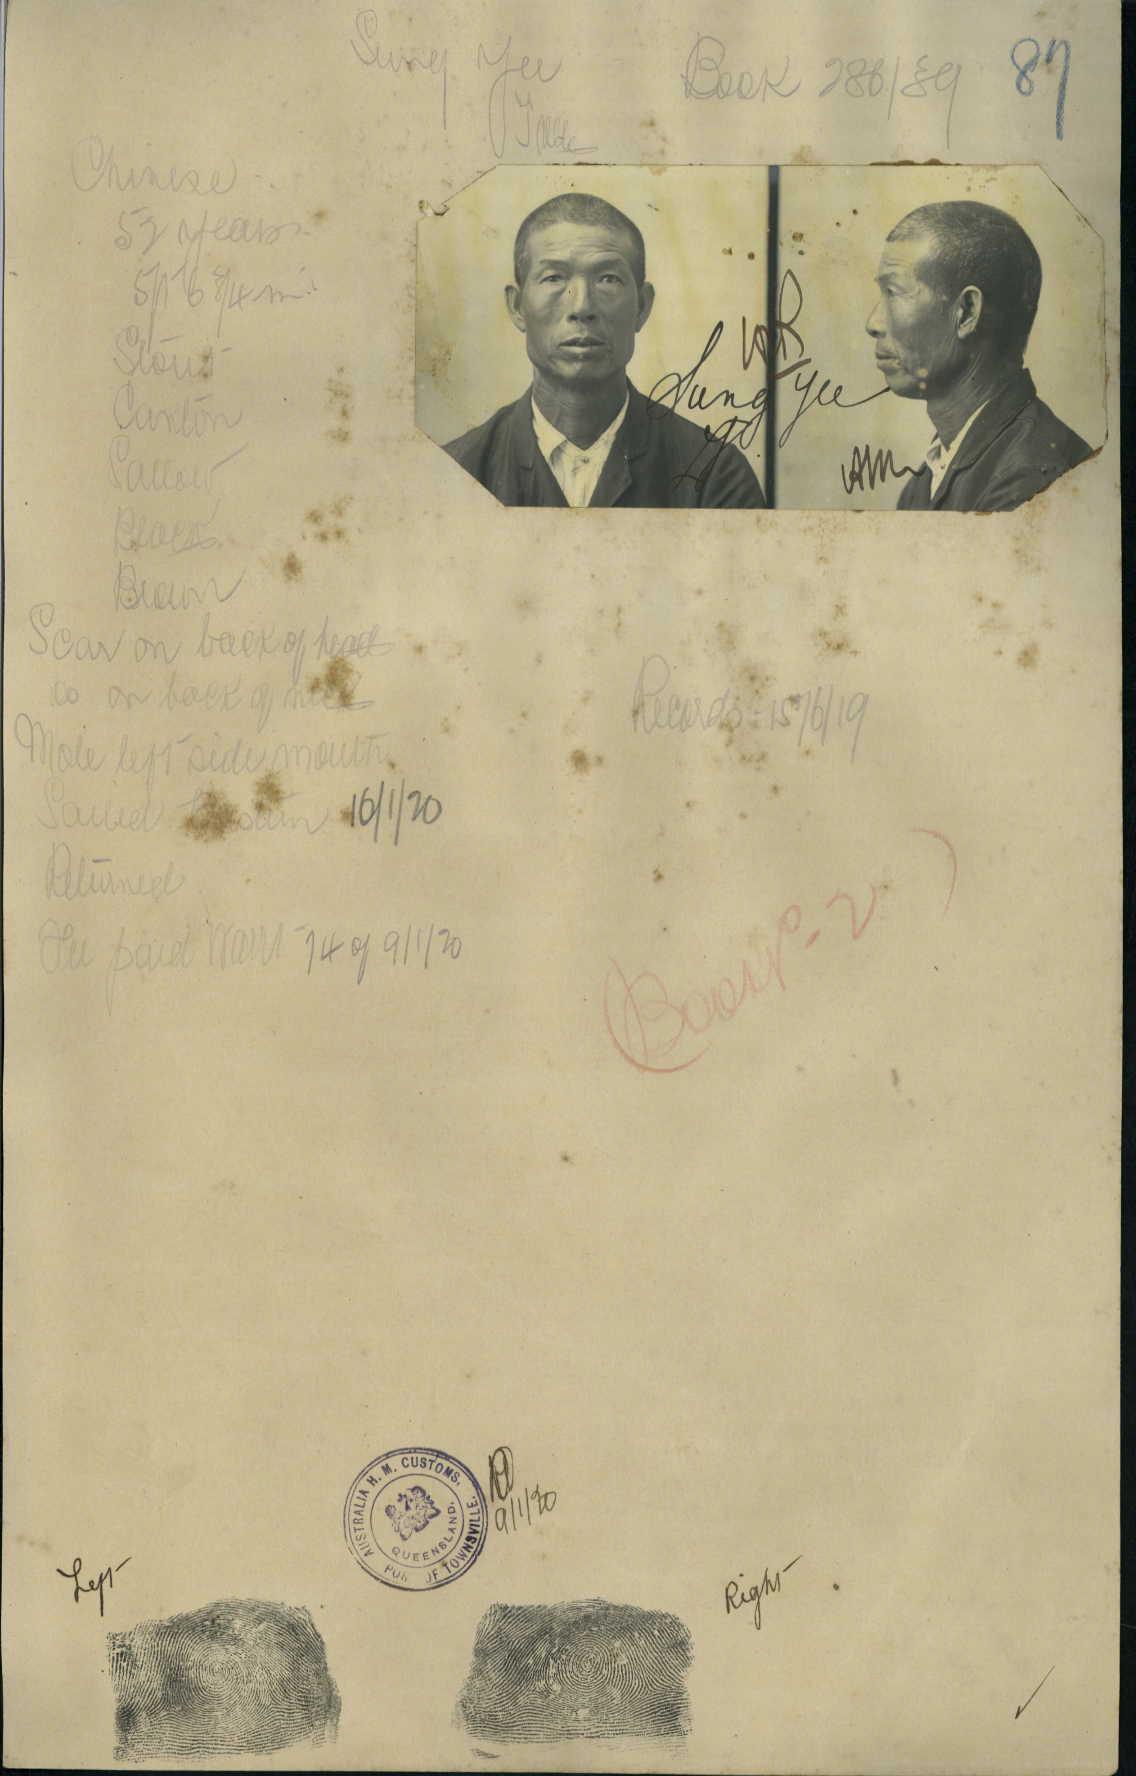 Sung Yee Book 286/89 87
Chinese
52 years
Stout
Canton
Sallow
Black
Brown
Scar on back of head
do on back of neck
Mole left side mouth
Sung Yee
Records 15/6/19
Sailed 16/1/20
Returned
paid Warrt 74 of 9/1/20
(Book - 2)
AUSTRALIA H. M. CUSTOMS.
QUEENSLAND.
OF TOWNSVILLE.
9/1/20
Left
Right